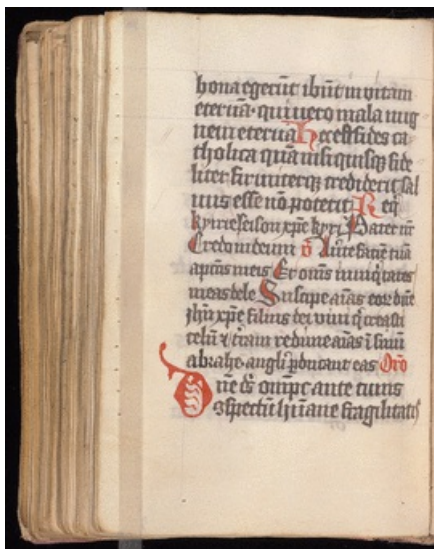 bona egerūt ibūt in vitam
eternā · qui vero mala in ig
nem eternū Hec est fides ca
tholica quā nisi quisq̧ fide
liter firmiterq̧ crediderit sal
uus esse nō poterit Req̄
kyrieleison xp̄e kyri Pater nr̄
Credo in deum Au'te faciē tuā
a pctīs meis Et om̄s iniq̄tates
meas dele Suscipe aīas eoꝝ dn̄e
jhū xp̄e filius dei viui q̄ creasti
celū ⁊ t'ram redime aīas ī sinū
abrahe · angli ꝑducant eas Oro
Dn̄e ds̄ omp̄c ante tuum
ꝯspectū hūane fragilitatis